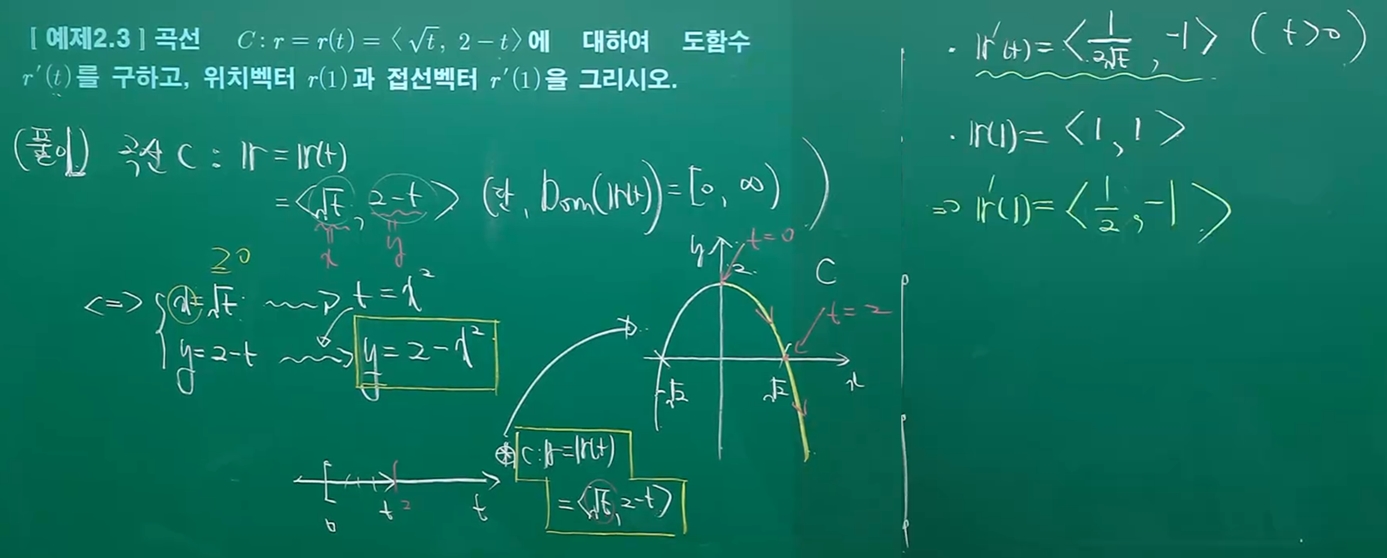 [ 예제2.3 ] 곡선 C : r = r(t) = ⟨√t, 2 − t⟩에 대하여 도함수
r′(t)를 구하고, 위치벡터 r(1)과 접선벡터 r′(1)을 그리시오.
(풀이) 곡선 C : r = r(t)
= ⟨√t, 2-t⟩ (단, Dom(r(t)) = [0, ∞))
x y
≥0
<=> { x=√t t = x²
y=2-t y = 2-x²
y 2 t=0
C
t=2
-√2 √2 x
0 t 2 t
⊛ C: r=r(t)
=⟨√t, 2-t⟩
· r′(t) = ⟨1/(2√t), -1⟩ (t>0)
· r(1) = ⟨1, 1⟩
⇒ r′(1) = ⟨1/2, -1⟩